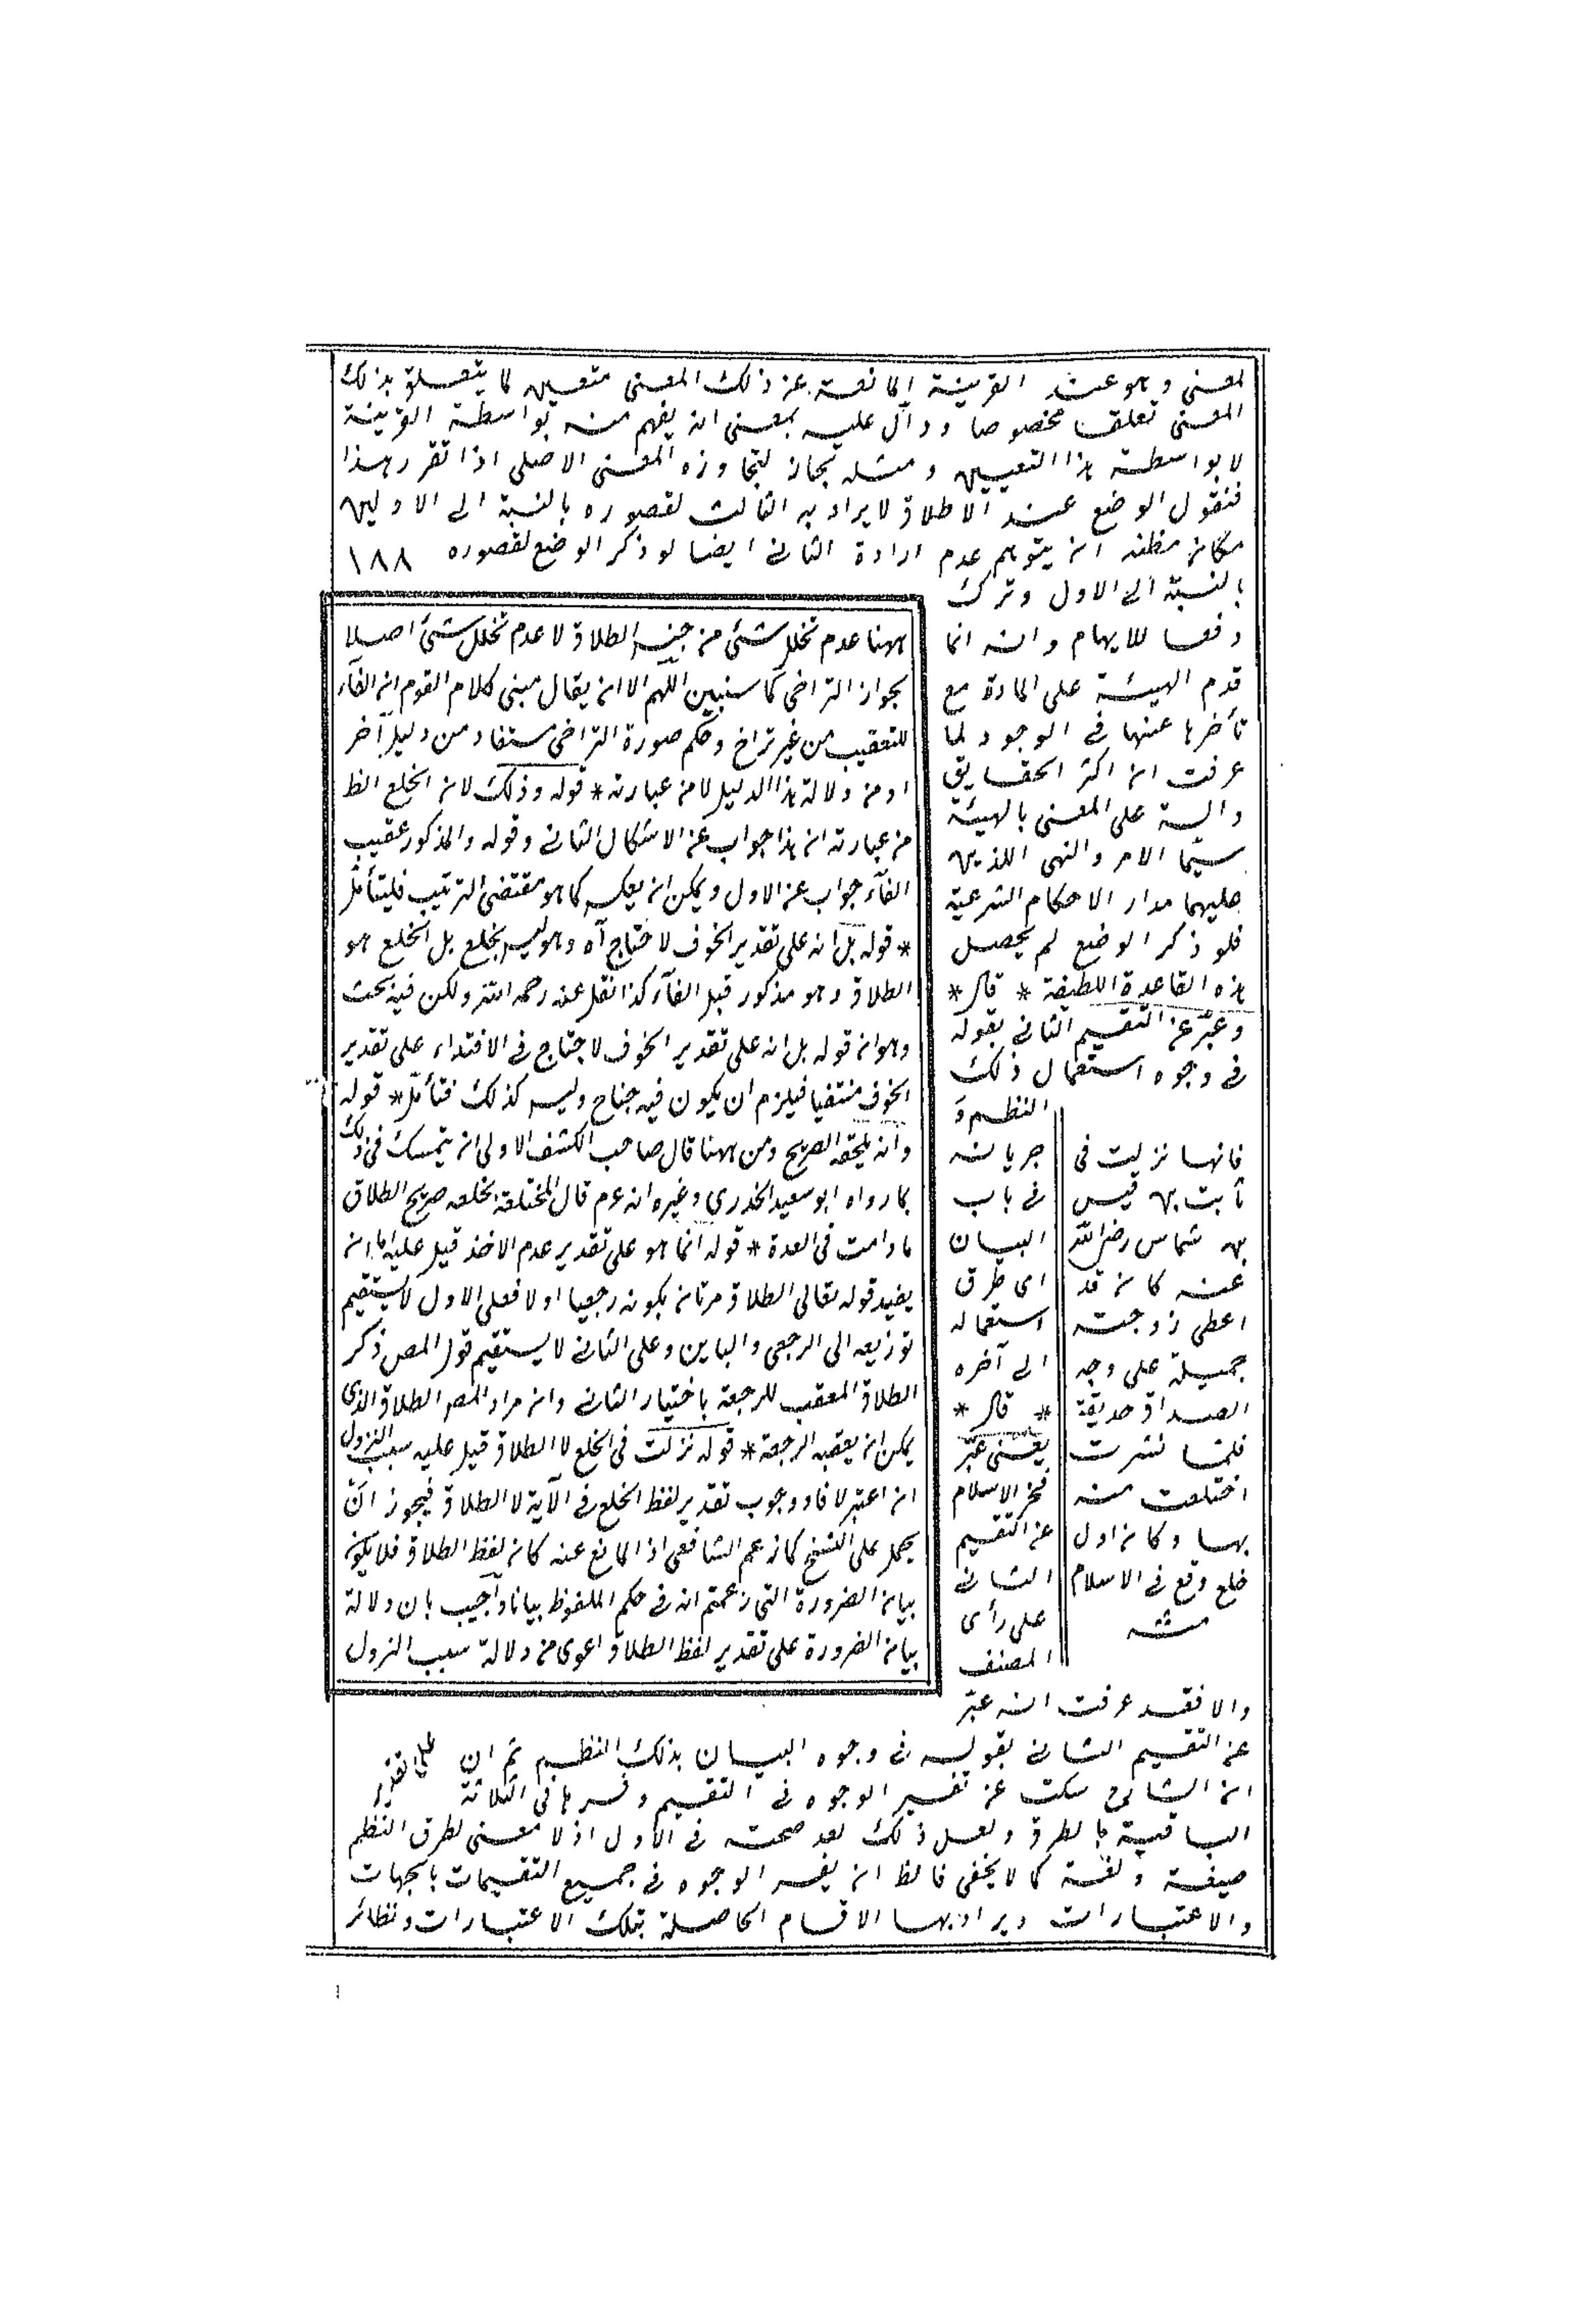 لمعنى وهو عند القرينة المانعة عن ذلك المعنى متعين لما يتعلق بذلك
المعنى تعلقا مخصوصا ودال عليه بمعنى انه يفهم منه بواسطة القرينة
لا بواسطة هذا التعيين ومثله مجاز لتجاوزه المعنى الاصلى اذا تقرر هذا
فنقول الوضع عند الاطلاق لا يراد به الثالث لقصوره بالنسبة الى الاولين
فكان مظنة ان يتوهم عدم ارادة الثانى ايضا لو ذكر الوضع لقصوره ١٨٨
بالنسبة الى الاول وترك
دفعا للايهام وانه انما
قدم الهيئة على المادة مع
تأخرها عنها فى الوجود لما
عرفت ان اكثر الحقايق
دالة على المعنى بالهيئة
سيما الامر والنهى اللذين
عليهما مدار الاحكام الشرعية
فلو ذكر الوضع لم يحصل
هذه القاعدة اللطيفة * قال *
وعبر عن التقسيم الثانى بقوله
فى وجوه استعمال ذلك
النظم و
جريانه
فى باب
البيان
اى طرق
استعماله
الى آخره
* قال *
يعنى عبر
فخر الاسلام
عن التقسيم
الثانى
على رأى
المصنف
والا فقد عرفت انه عبر
عن التقسيم الثانى بقوله فى وجوه البيان بذلك النظم ثم ان
ان الشارح سكت عن تفسير الوجوه فى التقسيم وفسرها فى الثلاثة
الباقية بالطرق ولعل ذلك لعدم صحته فى الاول اذ لا معنى لطرق النظم
صيغة ولغة كما لا يخفى فالظ ان يفسر الوجوه فى جميع التقسيمات بالجهات
والاعتبارات ويراد بها الاقسام الحاصلة بتلك الاعتبارات ونظائر
فانها نزلت فى
ثابت بن قيس
بن شماس رضى الله
عنه كان قد
اعطى زوجته
جميلة على وجه
الصداق حديقة
فلما نشزت
اختلعت منه
بها وكان اول
خلع وقع فى الاسلام
منه
ههنا عدم تخلل شئ من جنس الطلاق لا عدم تخلل شئ اصلا
بجواز التراخى كما سنبين اللهم الا ان يقال مبنى كلام القوم ان الفاء
للتعقيب من غير تراخ وحكم صورة التراخى مستفاد من دليل آخر
او من دلالة هذا الدليل لا من عبارته * قوله وذلك لان الخلع الظ
من عبارته ان هذا جواب عن الاشكال الثانى وقوله والمذكور عقيب
الفاء جواب عن الاول ويمكن ان يعكس كما هو مقتضى الترتيب فليتأمل
* قوله بل انه على تقدير الخوف لا جناح آه وهو ليس بخلع بل الخلع هو
الطلاق وهو مذكور قبل الفاء كذا نقل عنه رحمه الله ولكن فيه بحث
وهو ان قوله بل انه على تقدير الخوف لا جناح فى الافتداء على تقدير
الخوف منتفيا فيلزم ان يكون فيه جناح وليس كذلك فتأمل * قوله
وانه يلحقه الصريح ومن ههنا قال صاحب الكشف الاولى ان يتمسك فى ذلك
بما رواه ابو سعيد الخدرى وغيره انه عم قال المختلعة يلحقه صريح الطلاق
ما دامت فى العدة * قوله انما هو على تقدير عدم الاخذ قيل عليه اما ان
يفيد قوله تعالى الطلاق مرتان بكونه رجعيا او لا فعلى الاول لا يستقيم
توزيعه الى الرجعى والباين وعلى الثانى لا يستقيم قول المص ذكر
الطلاق المعقب للرجعة باختيار الثانى وان مراد المص الطلاق الذى
يمكن ان يعقبه الرجعة * قوله نزلت فى الخلع لا الطلاق قيل عليه سبب النزول
ان اعتبر لافاد وجوب تقدير لفظ الخلع فى الآية لا الطلاق فيجوز ان
يحمل على الفسخ كما زعم الشافعى اذ المانع عنه كان لفظ الطلاق فلا يكون
بيان الضرورة التى زعمتم انه فى حكم الملفوظ بيانا واجيب بان دلالة
بيان الضرورة على تقدير لفظ الطلاق اقوى من دلالة سبب النزول
على تقدير